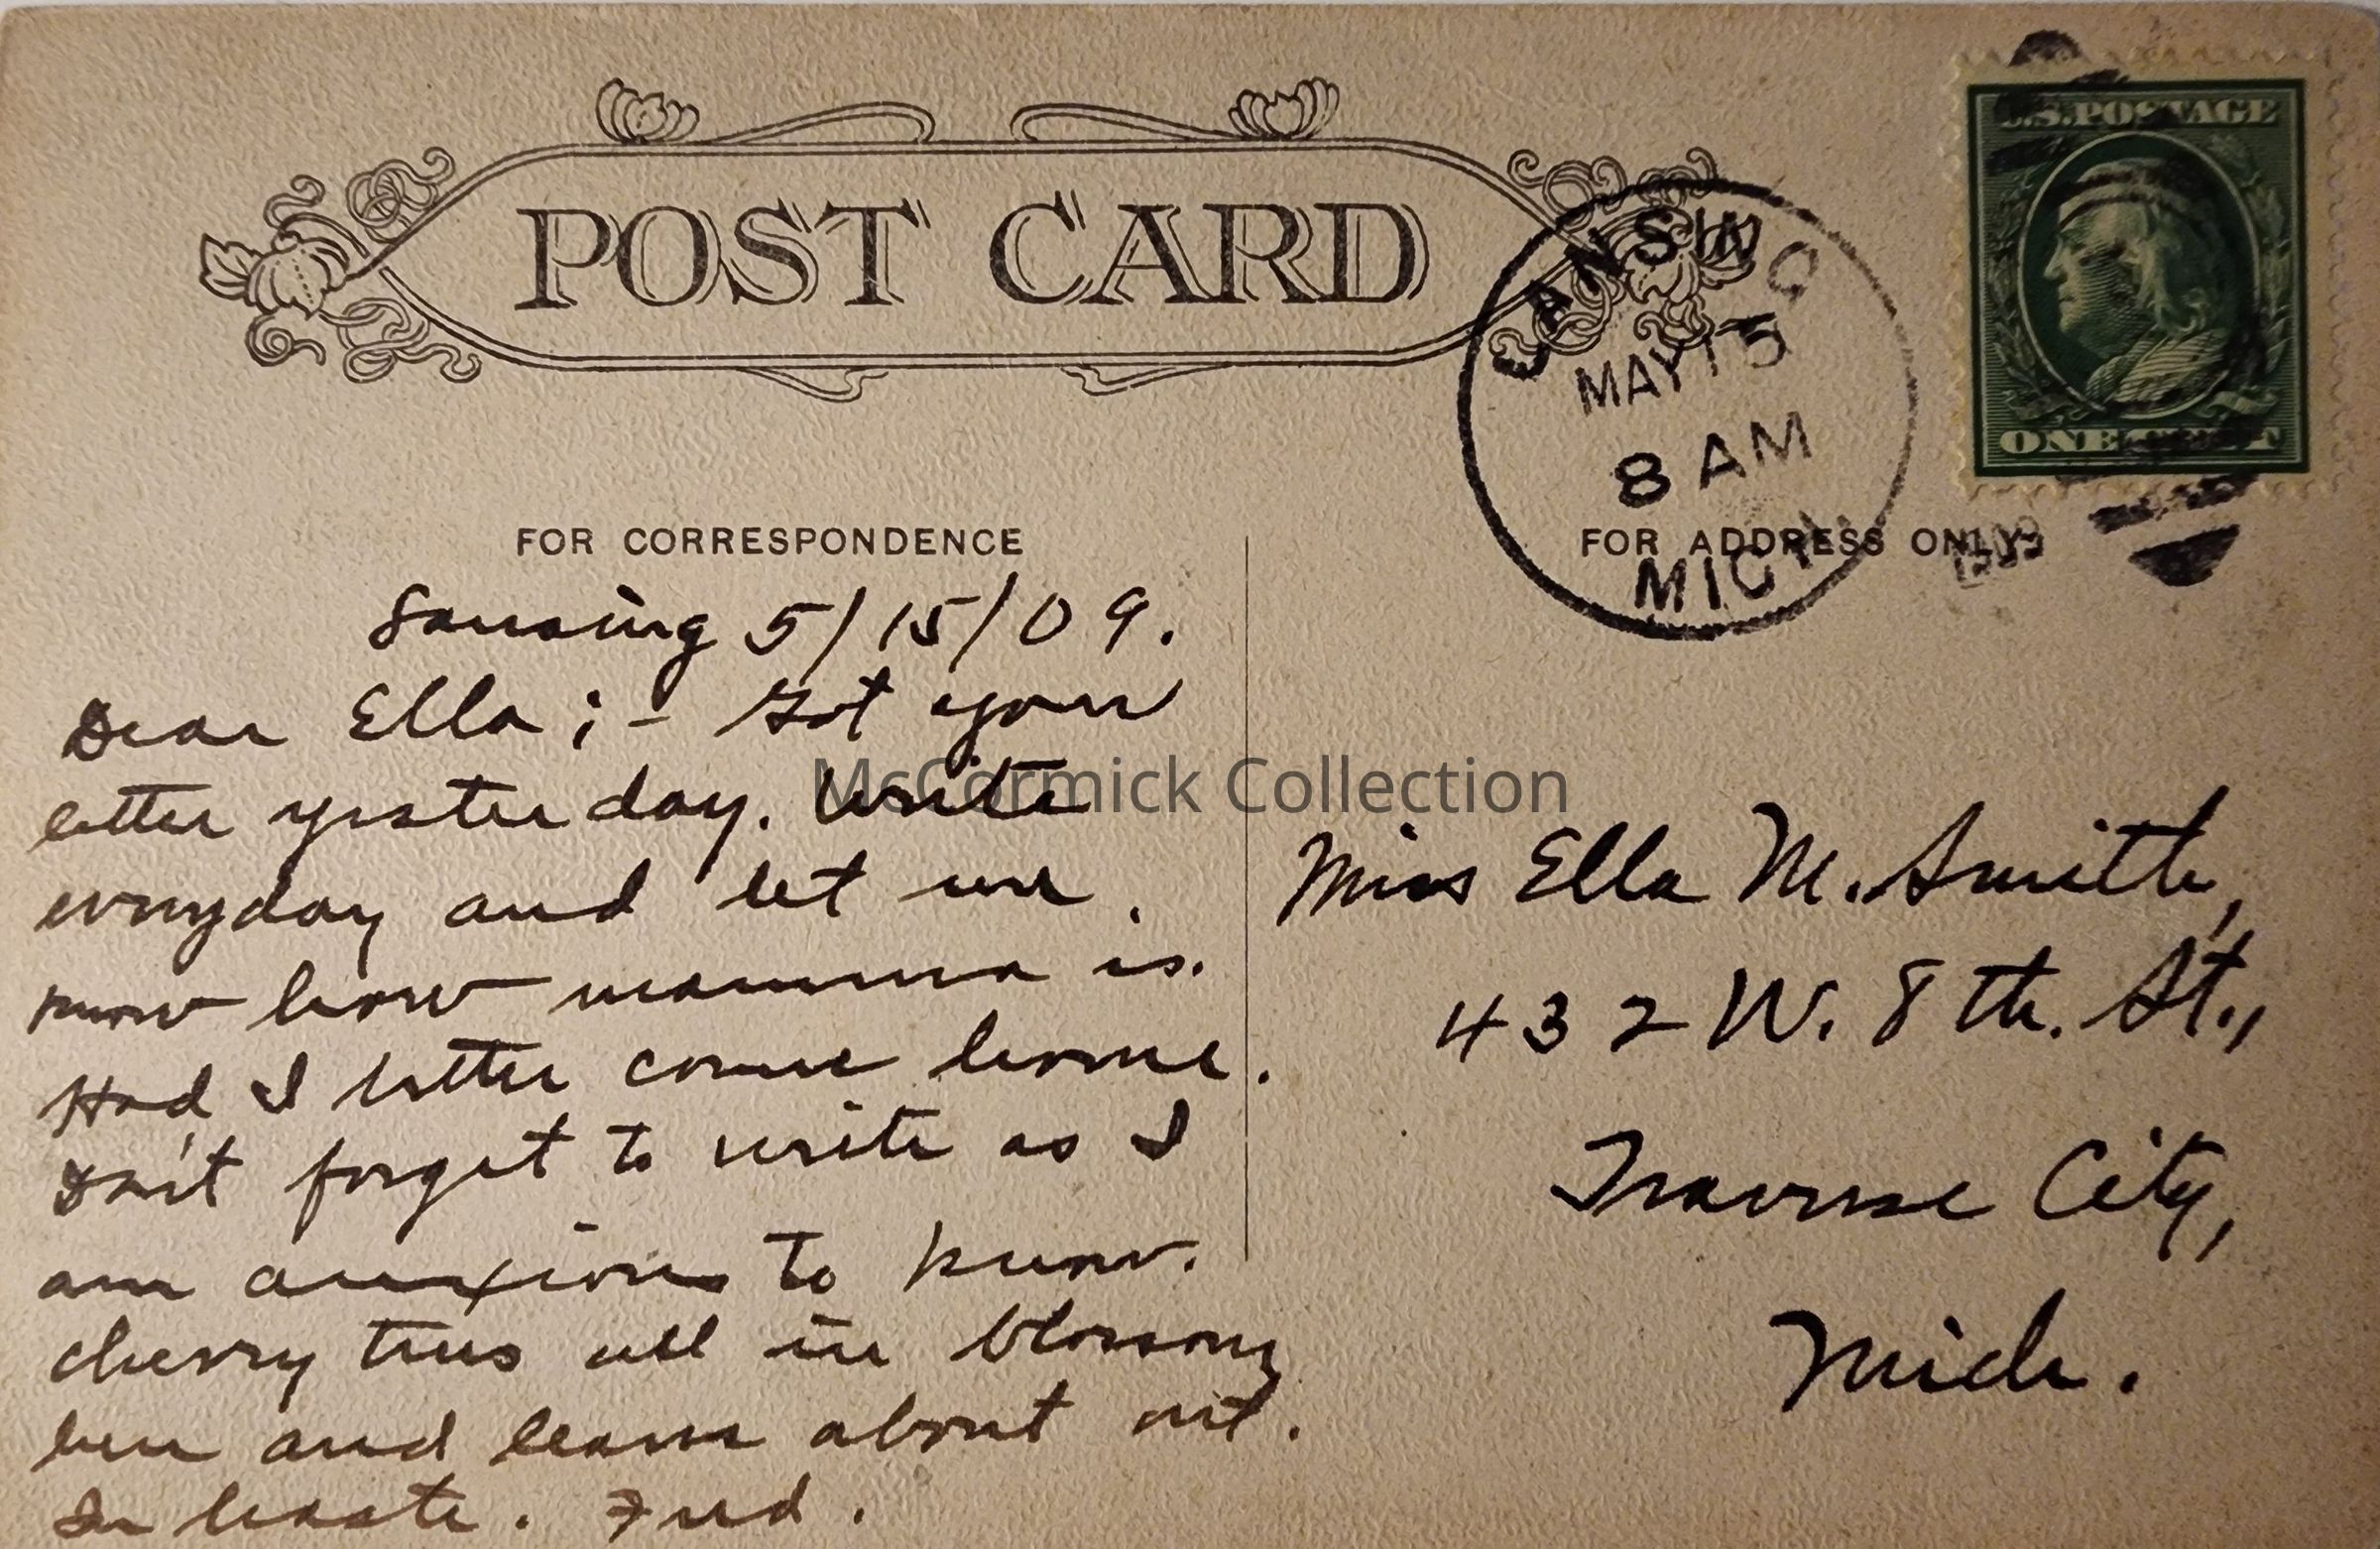 POST CARD
U.S. POSTAGE
ONE CENT
LANSING
MAY 15
8 AM
1909
MICH.
FOR CORRESPONDENCE
FOR ADDRESS ONLY
Lansing 5/15/09.
Dear Ella;- Got your
letter yesterday. Write
everyday and let me
know how mamma is.
Had I better come home.
Don't forget to write as I
am anxious to know.
cherry trees all in blossom
here and leaves about out.
In haste. Fred.
Miss Ella M. Smith,
432 W. 8th. St.,
Traverse City,
Mich.
McCormick Collection